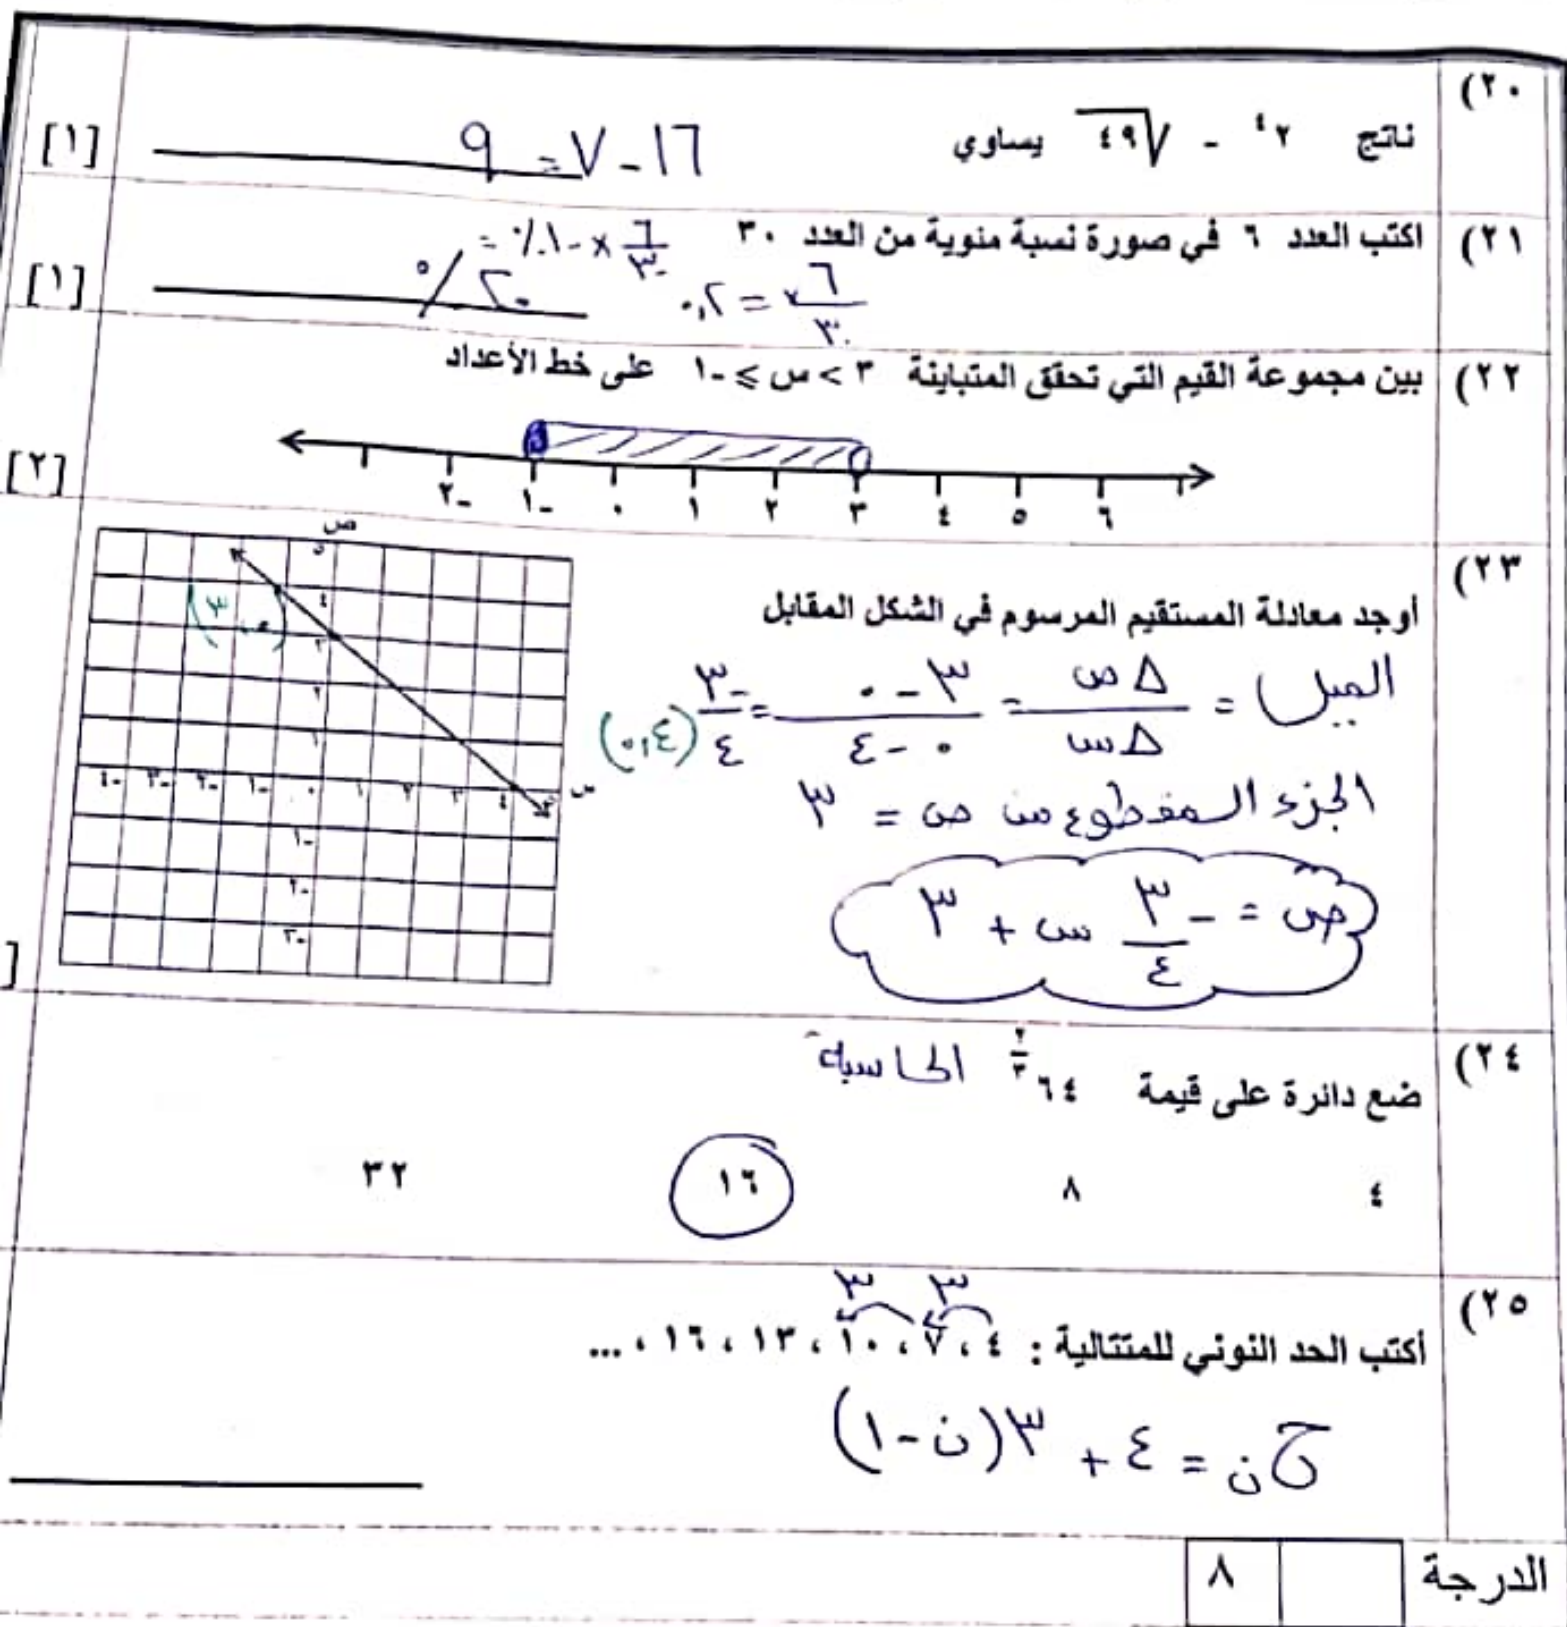 ٢٠)
ناتج ٢⁴ - √٤٩ يساوي ١٦ - ٧ = ٩ [١]
٢١) اكتب العدد ٦ في صورة نسبة مئوية من العدد ٣٠ ٦/٣٠ × ١٠٠٪ =
٦/٣٠ = ٠,٢ ٢٠٪ [١]
٢٢) بين مجموعة القيم التي تحقق المتباينة ٣ > س ⩾ -١ على خط الأعداد
[٢]
-٢ -١ ٠ ١ ٢ ٣ ٤ ٥ ٦
٢٣)
أوجد معادلة المستقيم المرسوم في الشكل المقابل
الميل = Δص / Δس = ٣ - ٠ / ٠ - ٤ = -٣ / ٤
الجزء المقطوع من ص = ٣
ص = -٣/٤ س + ٣
ص
٥
٤
(٠، ٣)
٣
٢
١
-٤ -٣ -٢ -١ ٠ ١ ٢ ٣ ٤ س
(٤،٠)
-١
-٢
-٣
٢٤) ضع دائرة على قيمة ٦٤^(٢/٣) الحاسبة
٤ ٨ ١٦ ٣٢
٢٥)
٣ ٣
أكتب الحد النوني للمتتالية : ٤ ، ٧ ، ١٠ ، ١٣ ، ١٦ ، ...
ح ن = ٤ + ٣(ن - ١)
الدرجة ٨